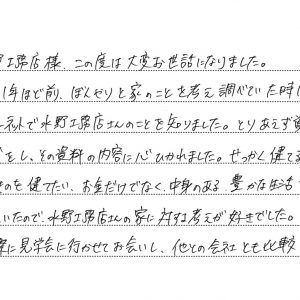 工務店様、この度は大変お世話になりました。
1年ほど前、ぼんやりと家のことを考え調べていた時に
ネットで水野工務店さんのことを知りました。とりあえず資
をし、その資料の内容に心ひかれました。せっかく建てる
ものを建てたい、お金だけでなく、中身のある、豊かな生活
いたので、水野工務店さんの家に対する考えが好きでした。
に見学会に行かせてお会いし、他との会社とも比較